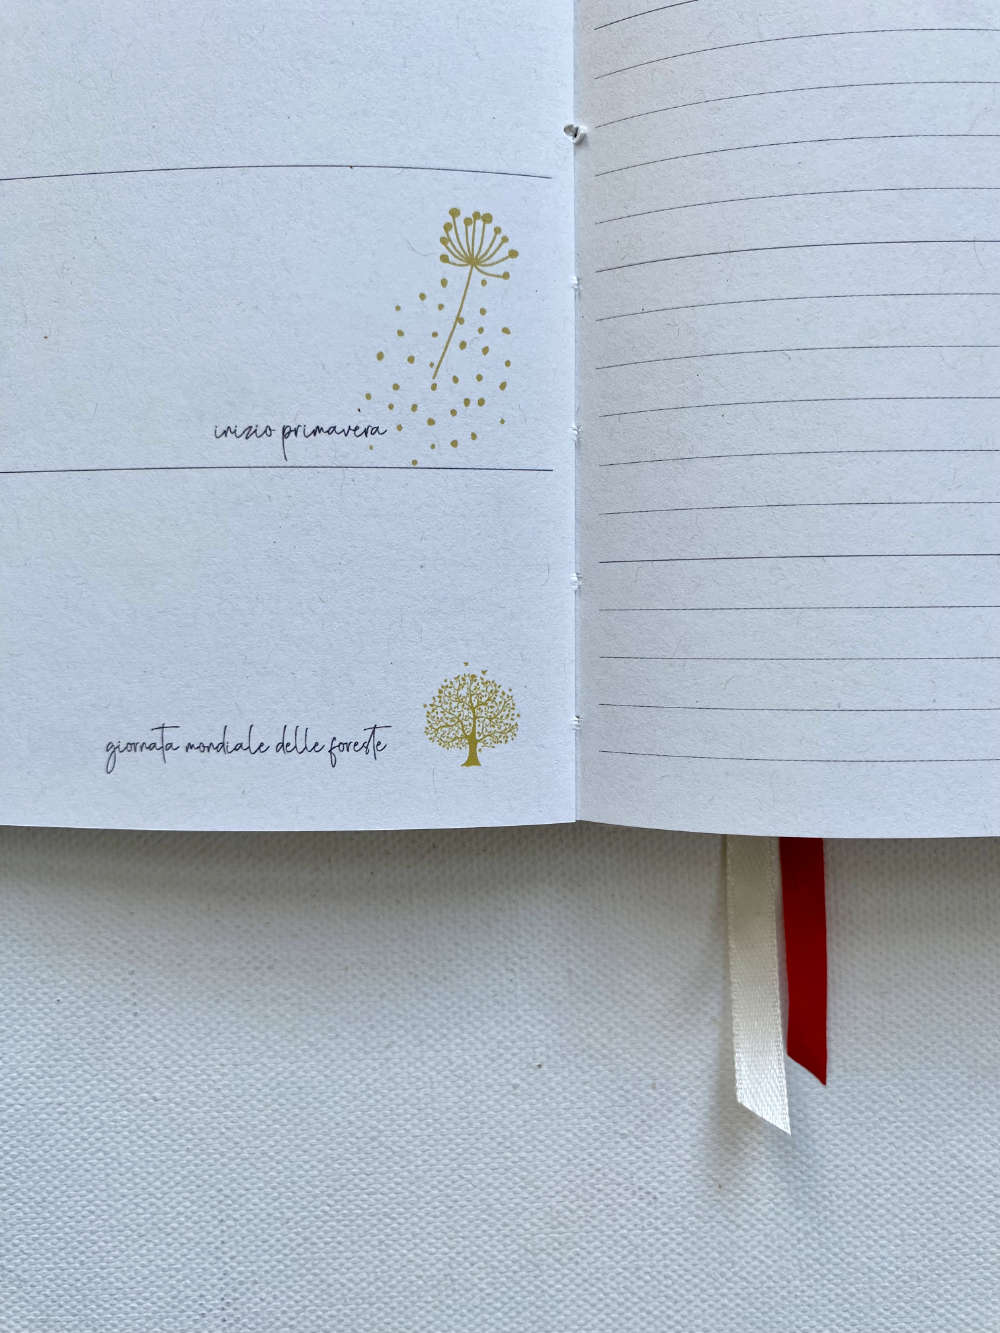 inizio primavera
giornata mondiale delle foreste